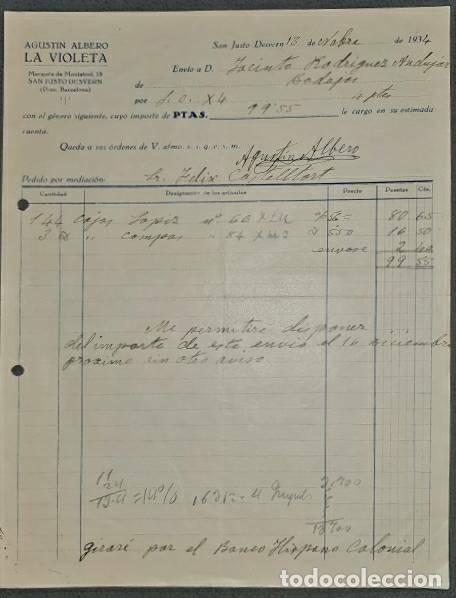 AGUSTIN ALBERO
LA VIOLETA
Marqués de Monistrol, 19
SAN JUSTO DESVERN
(Prov. Barcelona)
San Justo Desvern 13 de Nobre de 1934
Envío a D. Jacinto Rodriguez Andujar
de Badajoz
por S.O. X4 4 ptes
con el género siguiente, cuyo importe de PTAS. 99'55 le cargo en su estimada
cuenta.
Queda a sus órdenes de V. afmo. s. s. q. e. s. m.
Agustin Albero
Pedido por mediación: D. Felix Castelltort
Cantidad Designación de los artículos Precio Pesetas Cts.
144 Cajas Lapiz nº 60 X 24 0'56= 80 65
3 " compas " 84 X 5'50 16 50
envase 2 40
99 55
Me permitire disponer
del importe de este envio el 16 diciembre
proximo sin otro aviso
girare por el Banco Hispano Colonial
todocoleccion